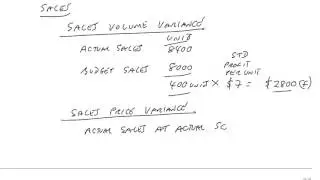 SALES
SALES VOLUME VARIANCE
UNITS
ACTUAL SALES 8400
STD
BUDGET SALES 8000 PROFIT
PER UNIT
400 UNITS × $7 = $2800 (F)
SALES PRICE VARIANCE
ACTUAL SALES AT ACTUAL SC